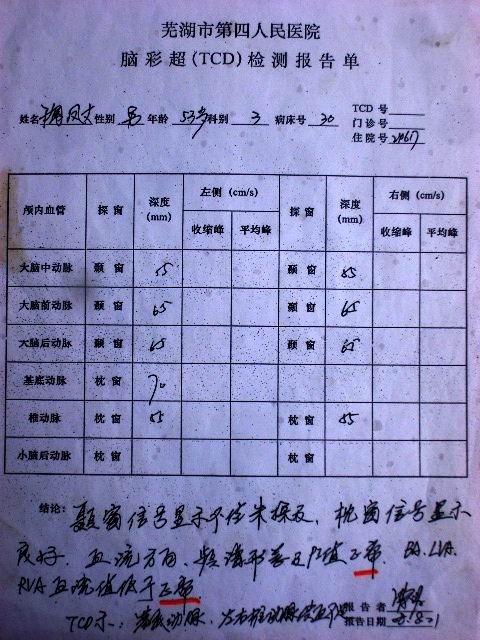 芜湖市第四人民医院
脑彩超(TCD)检测报告单
TCD 号
门诊号
姓名 性别 男 年龄 53岁 科别 3 病床号 30
住院号
颅内血管 探窗 深度(mm) 左侧 (cm/s) 探窗 深度(mm) 右侧 (cm/s)
收缩峰 平均峰 收缩峰 平均峰
大脑中动脉 颞窗 55 颞窗 55
大脑前动脉 颞窗 65 颞窗 65
大脑后动脉 颞窗 65 颞窗 65
基底动脉 枕窗 90
椎动脉 枕窗 55 枕窗 55
小脑后动脉 枕窗 枕窗
结论: 颞窗信号显示不佳未探及, 枕窗信号显示
良好. 血流方向, 频谱形态及PI值正常. BA. LVA.
RVA 血流值低于正常.
TCD示: 基底动脉, 左右椎动脉供血不足
报告者
报告日期